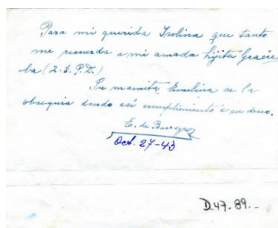 Para mi querida Isolina que tanto
me recuerda a mi amada hijita Gracie
la (Q.E.P.D.)
Su mamita Emelina se la
obsequia dando así cumplimiento a su deseo.
E. de Barroga
Oct. 27-43
D.47.89.-